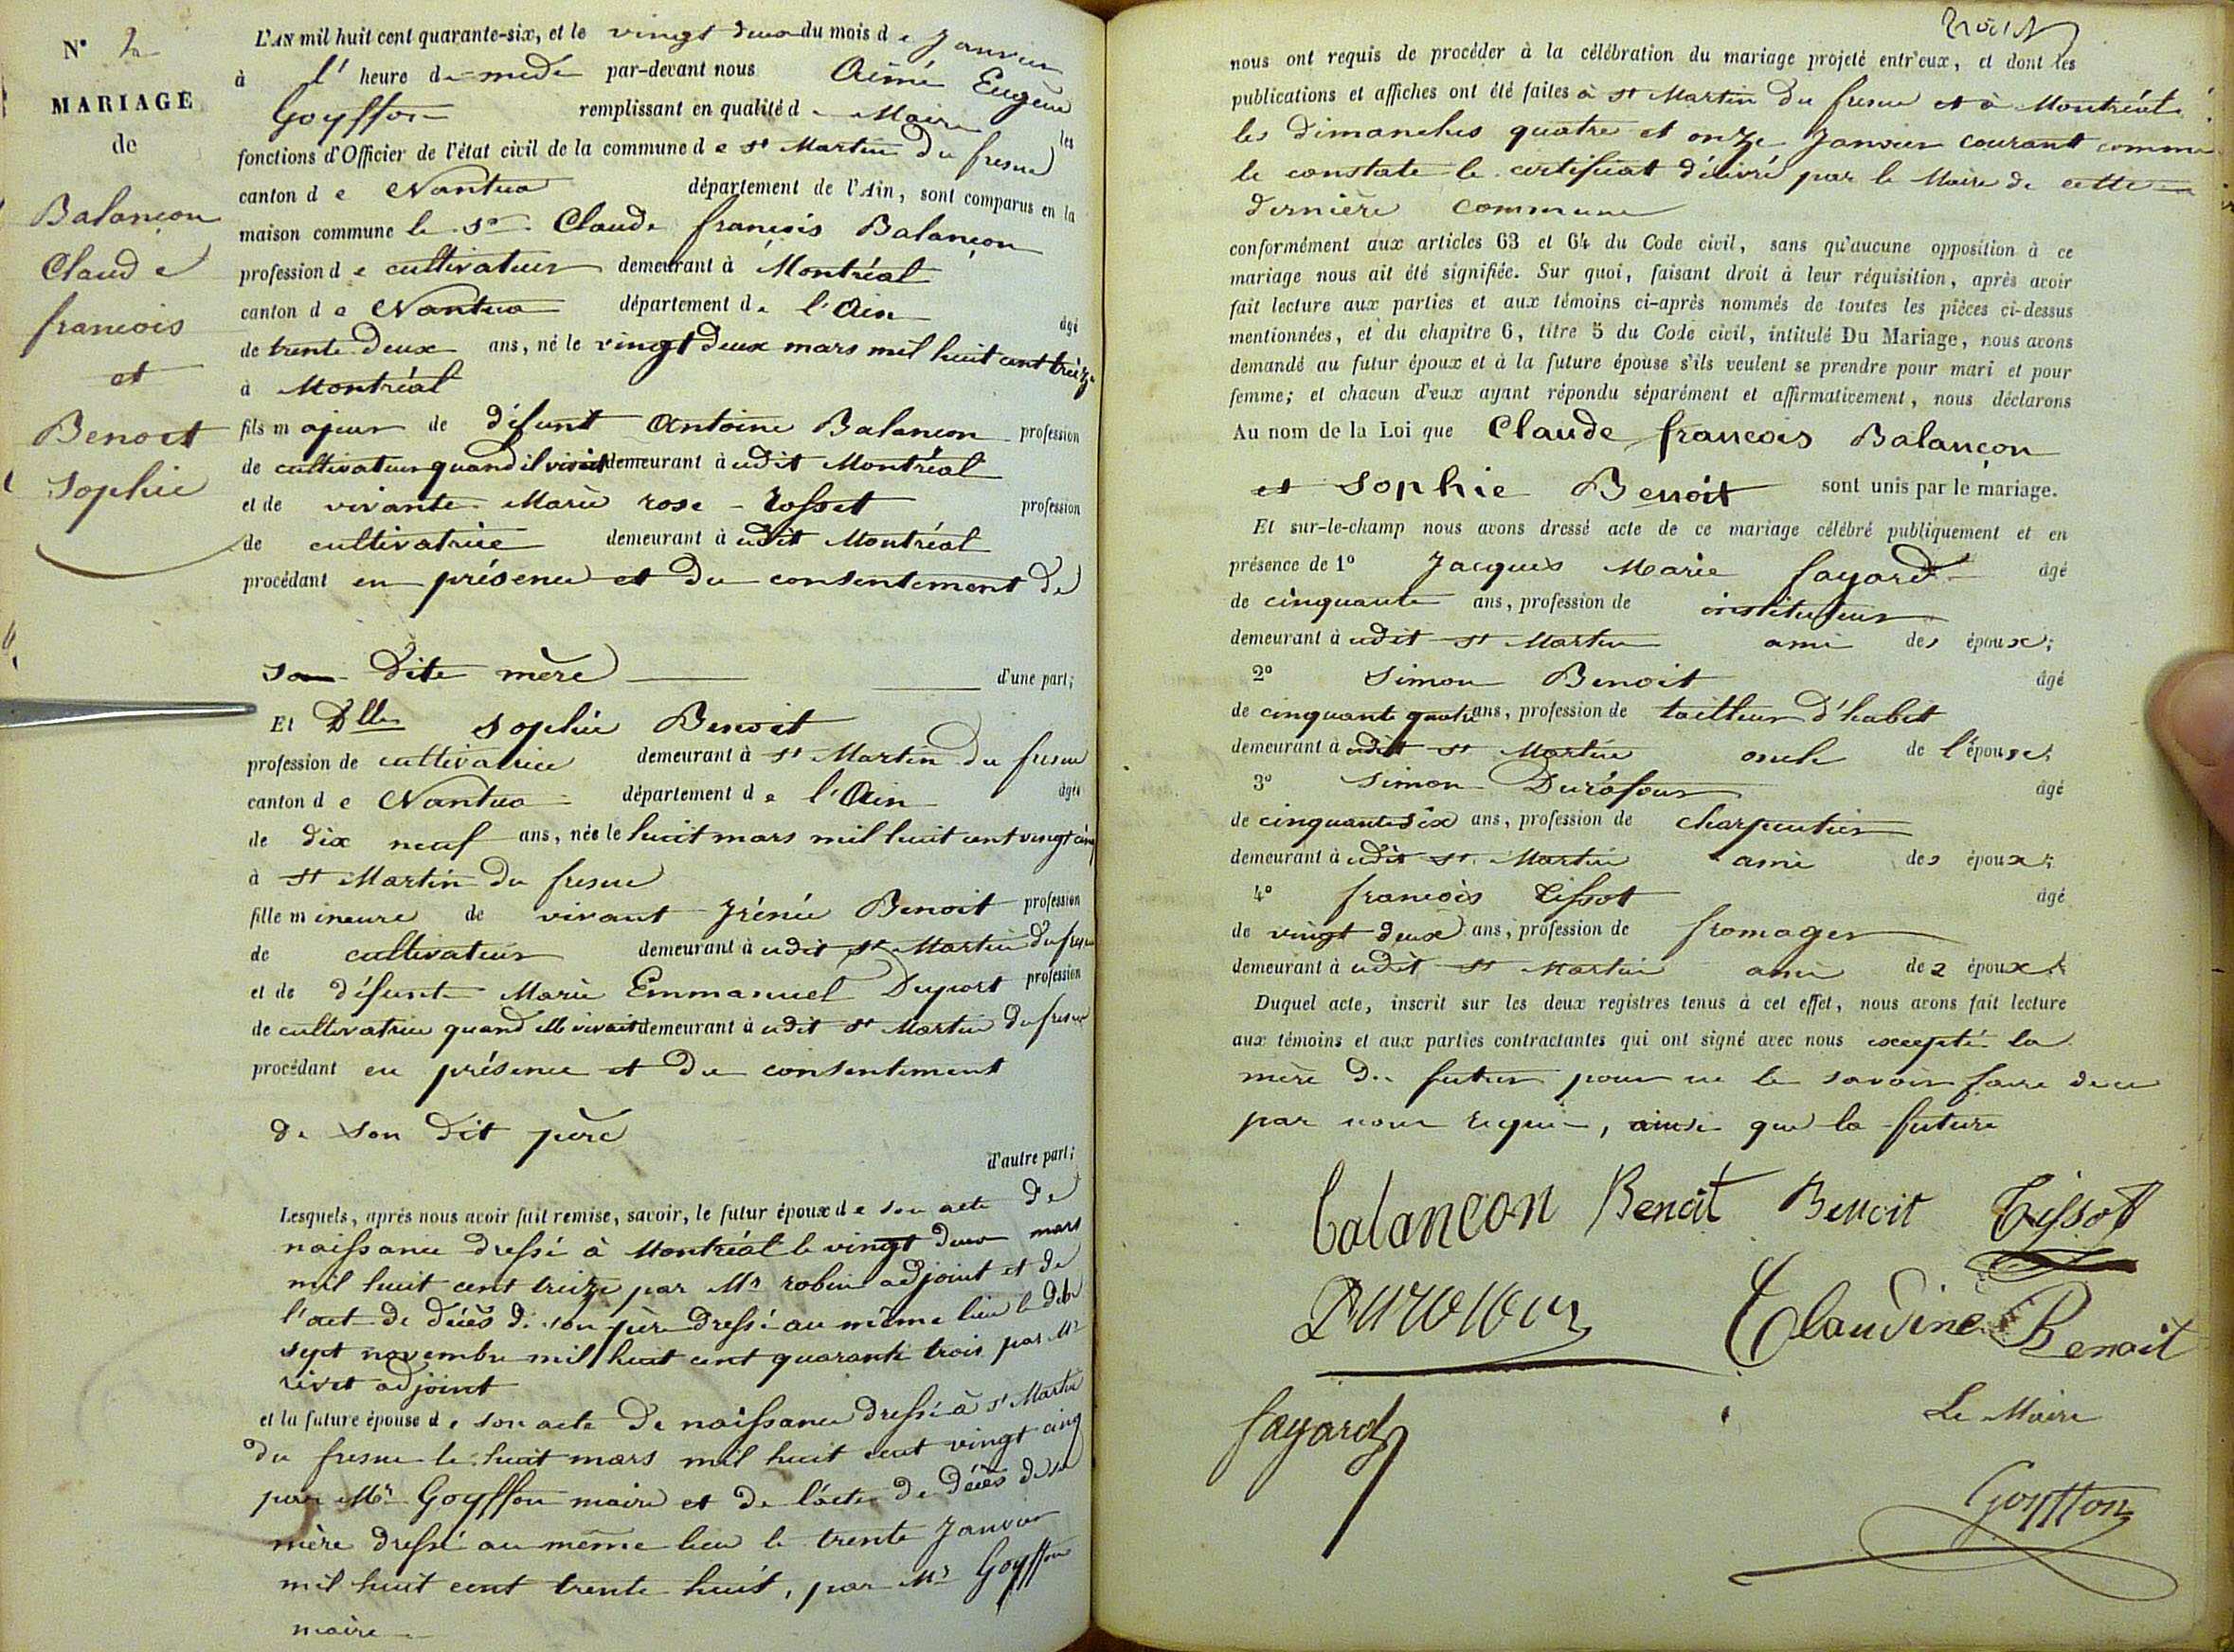 N° 2
MARIAGE
de
Balançon
Claude
francois
et
Benoit
Sophie
L'AN mil huit cent quarante-six, et le vingt deux du mois de Janvier
à l' heure de midi par-devant nous Aimé Eugène
Goyffon remplissant en qualité de Maire les
fonctions d'Officier de l'état civil de la commune de St Martin du fresne
canton de Nantua département de l'Ain, sont comparus en la
maison commune le Sr Claude francois Balançon
profession de cultivateur demeurant à Montréal
canton de Nantua département de l'Ain âgé
de trente deux ans, né le vingt deux mars mil huit cent treize
à Montréal
fils majeur de défunt Antoine Balancon profession
de cultivateur quand il vivait demeurant à udit Montréal
et de vivante Marie rose Rosset profession
de cultivatrice demeurant à udit Montréal
procédant en présence et du consentement de
sa dite mère d'une part;
Et Dlle Sophie Benoit
profession de cultivatrice demeurant à St Martin du fresne
canton de Nantua département de l'Ain âgée
de dix neuf ans, née le huit mars mil huit cent vingt cinq
à St Martin du fresne
fille mineure de vivant Irénée Benoit profession
de cultivateur demeurant à udit St Martin du fresne
et de défunte Marie Emmanuel Duport profession
de cultivatrice quand elle vivait demeurant à udit St Martin du fresne
procédant en présence et du consentement
de son dit père
d'autre part;
Lesquels, après nous avoir fait remise, savoir, le futur époux de son acte de
naissance dressé à Montréal le vingt deux mars
mil huit cent treize par Mr robin adjoint et de
l'act de décès de son père dressé au même lieu le dix
sept novembre mil huit cent quarante trois par Mr
rivet adjoint
et la future épouse de son acte de naissance dressé à St Martin
du fresne le huit mars mil huit cent vingt cinq
par Mr Goyffon maire et de l'acte de décès de sa
mère dressé au même lieu le trente Janvier
mil huit cent trente huit, par Mr Goyffon
maire
trois
nous ont requis de procéder à la célébration du mariage projeté entr'eux, et dont les
publications et affiches ont été faites à St Martin du fresne et à Montréal
les Dimanches quatre et onze Janvier courant comme
le constate le certificat délivré par le Maire de cette
dernière commune
conformément aux articles 63 et 64 du Code civil, sans qu'aucune opposition à ce
mariage nous ait été signifiée. Sur quoi, faisant droit à leur réquisition, après avoir
fait lecture aux parties et aux témoins ci-après nommés de toutes les pièces ci-dessus
mentionnées, et du chapitre 6, titre 5 du Code civil, intitulé Du Mariage, nous avons
demandé au futur époux et à la future épouse s'ils veulent se prendre pour mari et pour
femme; et chacun d'eux ayant répondu séparément et affirmativement, nous déclarons
Au nom de la Loi que Claude francois Balançon
et Sophie Benoit sont unis par le mariage.
Et sur-le-champ nous avons dressé acte de ce mariage célébré publiquement et en
présence de 1° Jacques Marie fayard âgé
de cinquante ans, profession de instituteur
demeurant à udit St Martin ami des époux;
2° Simon Benoit âgé
de cinquante quatre ans, profession de tailleur d'habit
demeurant à udit St Martin oncle de l'épouse;
3° Simon Durafour âgé
de cinquante six ans, profession de charpentier
demeurant à udit St Martin ami des époux;
4° francois Tissot âgé
de vingt deux ans, profession de fromager
demeurant à udit St Martin ami des époux;
Duquel acte, inscrit sur les deux registres tenus à cet effet, nous avons fait lecture
aux témoins et aux parties contractantes qui ont signé avec nous excepté la
mère du futur pour ne le savoir faire de ce
par nous requis, ainsi que la future
balancon Benoit Benoit Tissot
Claudine Benoit
fayard
Le Maire
Goyffon